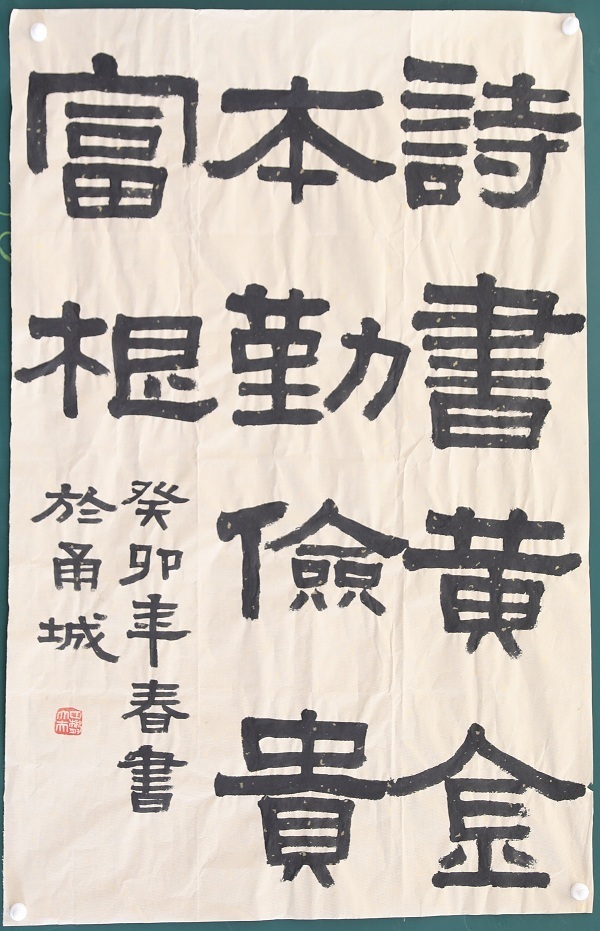 詩書黄金
本勤儉貴
富根
癸卯年春書
於甬城